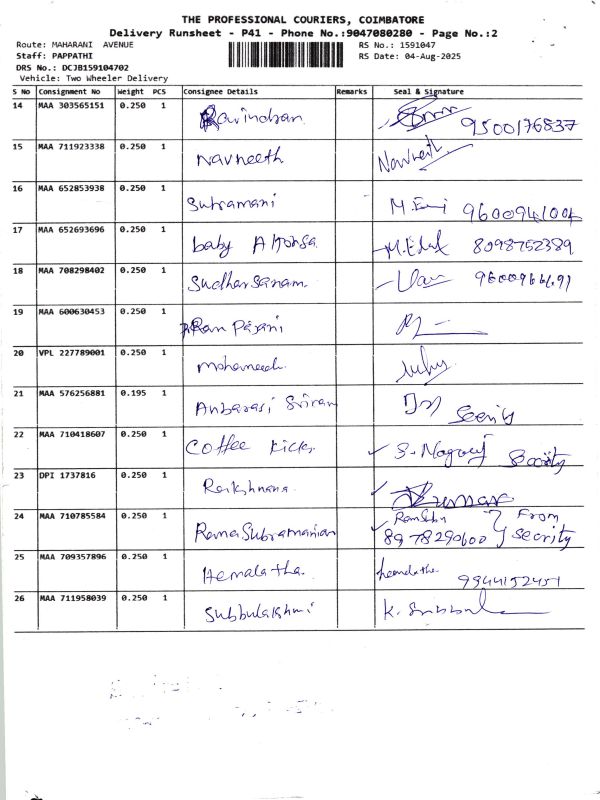 THE PROFESSIONAL COURIERS, COIMBATORE
Delivery Runsheet - P41 - Phone No.:9047080280 - Page No.:2
Route: MAHARANI AVENUE RS No.: 1591047
Staff: PAPPATHI RS Date: 04-Aug-2025
DRS No.: DCJB159104702
Vehicle: Two Wheeler Delivery
S No Consignment No Weight PCS Consignee Details Remarks Seal & Signature
14 MAA 303565151 0.250 1 Ravindran 9500176837
15 MAA 711923338 0.250 1 Navneeth Navneeth
16 MAA 652853938 0.250 1 Subramani
17 MAA 652693696 0.250 1 baby 8098752389
18 MAA 708298402 0.250 1 Sudharsanam
19 MAA 600630453 0.250 1 Ram Pajani
20 VPL 227789001 0.250 1
21 MAA 576256881 0.195 1 Anbarasi Sriram
22 MAA 710418607 0.250 1 Coffee
23 DPI 1737816 0.250 1 Kumar
24 MAA 710785584 0.250 1 RamaSubramanian From
8978290600 Secrity
25 MAA 709357896 0.250 1 Hemalatha hemalatha 9944152451
26 MAA 711958039 0.250 1 Subbulakshmi